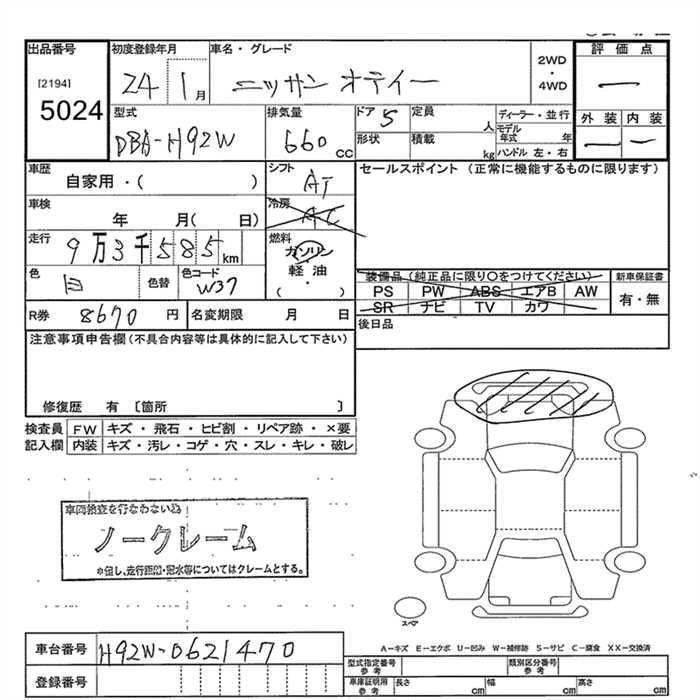 出品番号 初度登録年月 車名・グレード 評価点
[2194] 5024
24 1月 ニッサン オティー
2WD・4WD
型式 排気量 ドア 定員 ディーラー・並行 外装 内装
DBA-H92W 660cc 5 人 モデル年式 年
形状 積載 kg ハンドル 左・右
車歴 シフト セールスポイント(正常に機能するものに限ります)
自家用・( ) AT
車検 冷房
年 月( 日) AC
走行 燃料
9万3千585km ガソリン
色 色替 色コード 軽油
白 W37 (・)
装備品(純正品に限り○をつけてください) 新車保証書
PS PW ABS エアB AW 有・無
SR ナビ TV カワ
R券 8670円 名変期限 月 日 後日品
注意事項申告欄(不具合内容等は具体的に記入して下さい)
修復歴 有 〔箇所 〕
検査員 FW キズ・飛石・ヒビ割・リペア跡・×要
記入欄 内装 キズ・汚レ・コゲ・穴・スレ・キレ・破レ
車両検査を行なわない為
ノークレーム
※但し、走行距離・冠水等についてはクレームとする。
スペア
A-キズ E-エクボ U-凹み W-補修跡 S-サビ C-腐食 XX-交換済
車台番号 H92W-0621470
型式指定番号 参考 類別区分番号 参考
登録番号
車庫証明用 参考 長さ cm 幅 cm 高さ cm